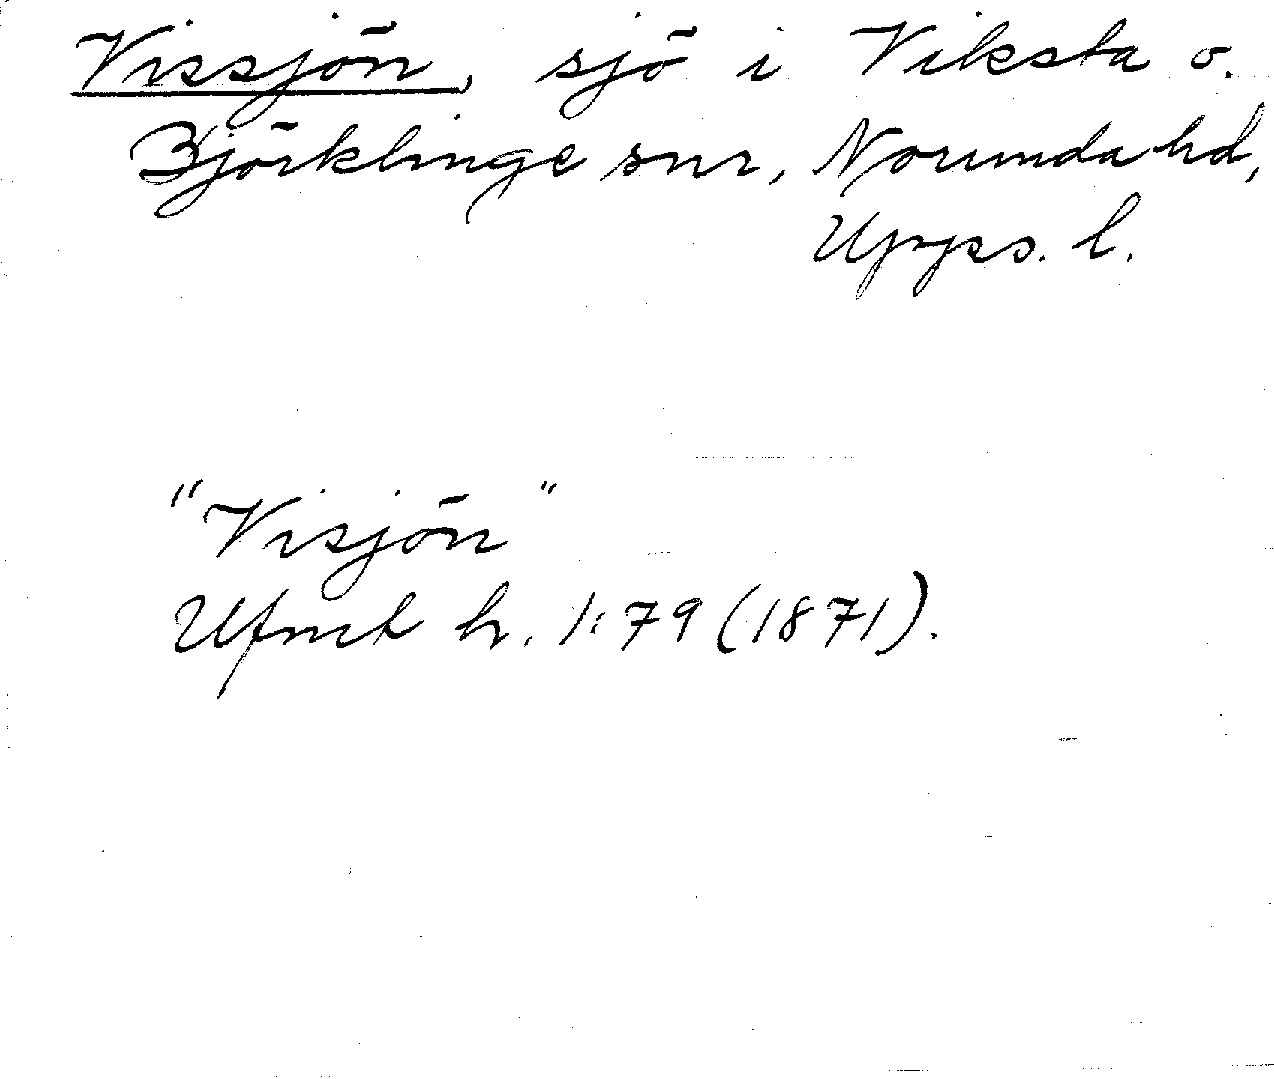 Vissjön, sjö i Viksta o.
Björklinge snr, Norunda hd,
Upps. l.
"Visjön"
Ufmt h. 1:79 (1871).